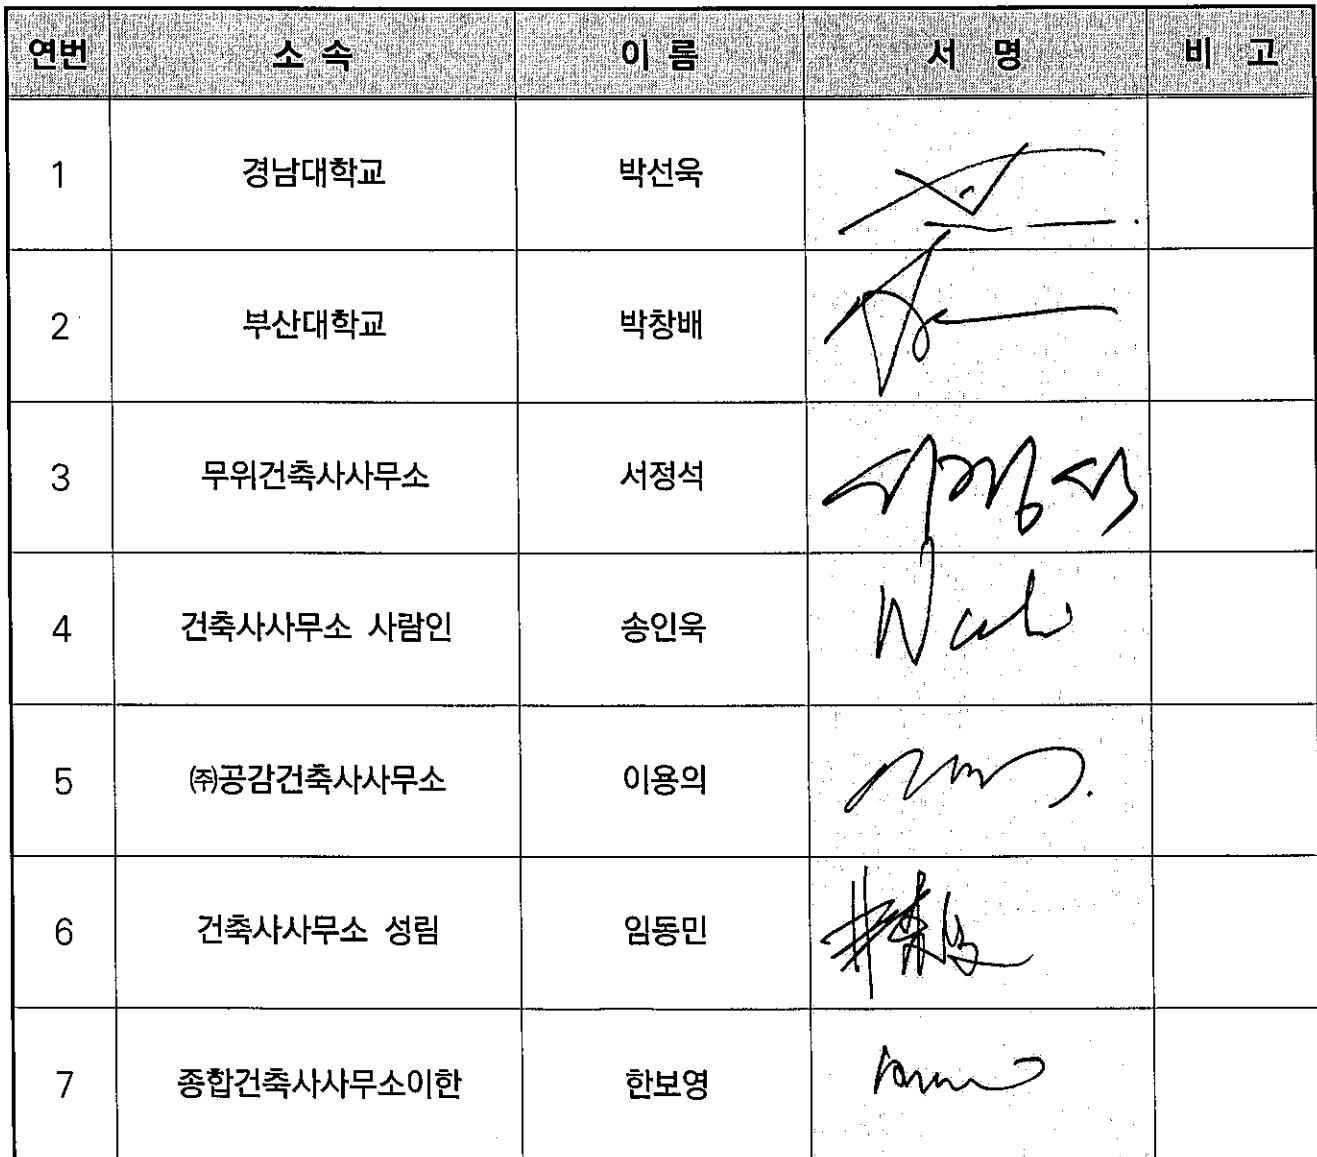 연번 소 속 이 름 서 명 비 고
1 경남대학교 박선욱
2 부산대학교 박창배
3 무위건축사사무소 서정석 서정석
4 건축사사무소 사람인 송인욱
5 ㈜공감건축사사무소 이용의
6 건축사사무소 성림 임동민
7 종합건축사사무소이한 한보영